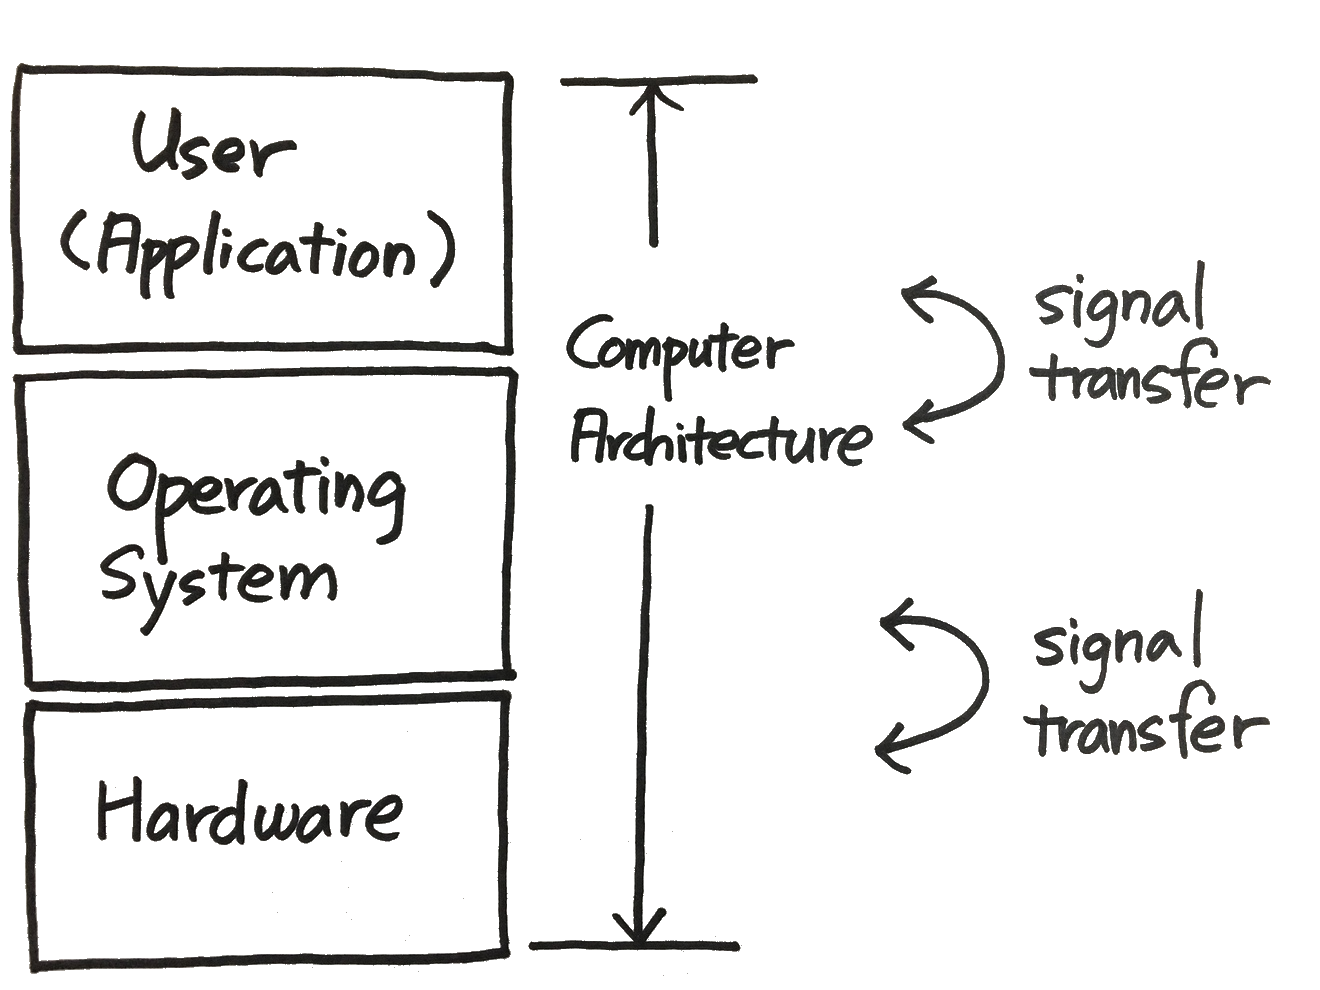 User
(Application)
Operating
System
Hardware
Computer
Architecture
signal
transfer
signal
transfer